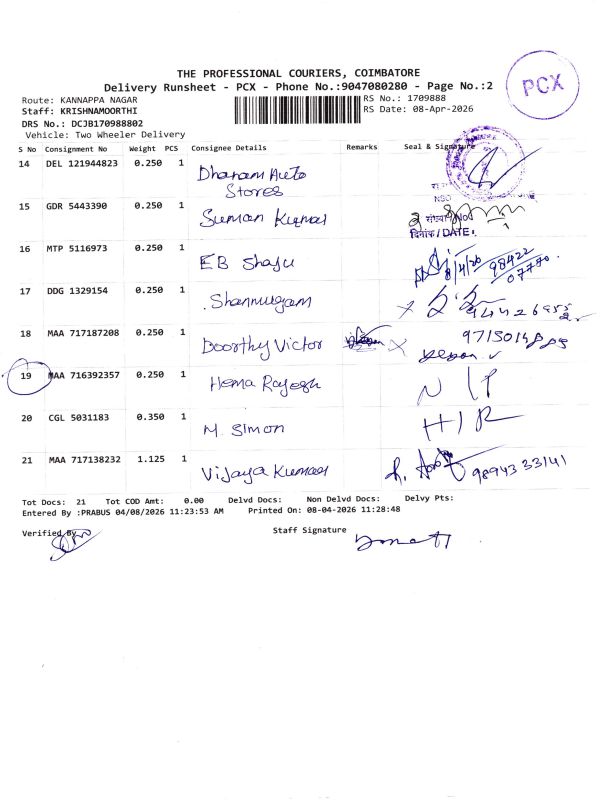 THE PROFESSIONAL COURIERS, COIMBATORE
Delivery Runsheet - PCX - Phone No.:9047080280 - Page No.:2
PCX
Route: KANNAPPA NAGAR
RS No.: 1709888
Staff: KRISHNAMOORTHI
RS Date: 08-Apr-2026
DRS No.: DCJB170988802
Vehicle: Two Wheeler Delivery
S No Consignment No Weight PCS Consignee Details Remarks Seal & Signature
14 DEL 121944823 0.250 1 Dharam Auto Stores
15 GDR 5443390 0.250 1 Suman Kumar
संख्या/No
दिनांक/DATE:
16 MTP 5116973 0.250 1 EB Shaju 98422 07770
17 DDG 1329154 0.250 1 Shanmugam
18 MAA 717187208 0.250 1 Doorthy Victor
19 MAA 716392357 0.250 1 Hema Rajesh
20 CGL 5031183 0.350 1 M. Simon
21 MAA 717138232 1.125 1 Vijaya Kumar 98943 33141
Tot Docs: 21 Tot COD Amt: 0.00 Delvd Docs: Non Delvd Docs: Delvy Pts:
Entered By :PRABUS 04/08/2026 11:23:53 AM Printed On: 08-04-2026 11:28:48
Verified By
Staff Signature